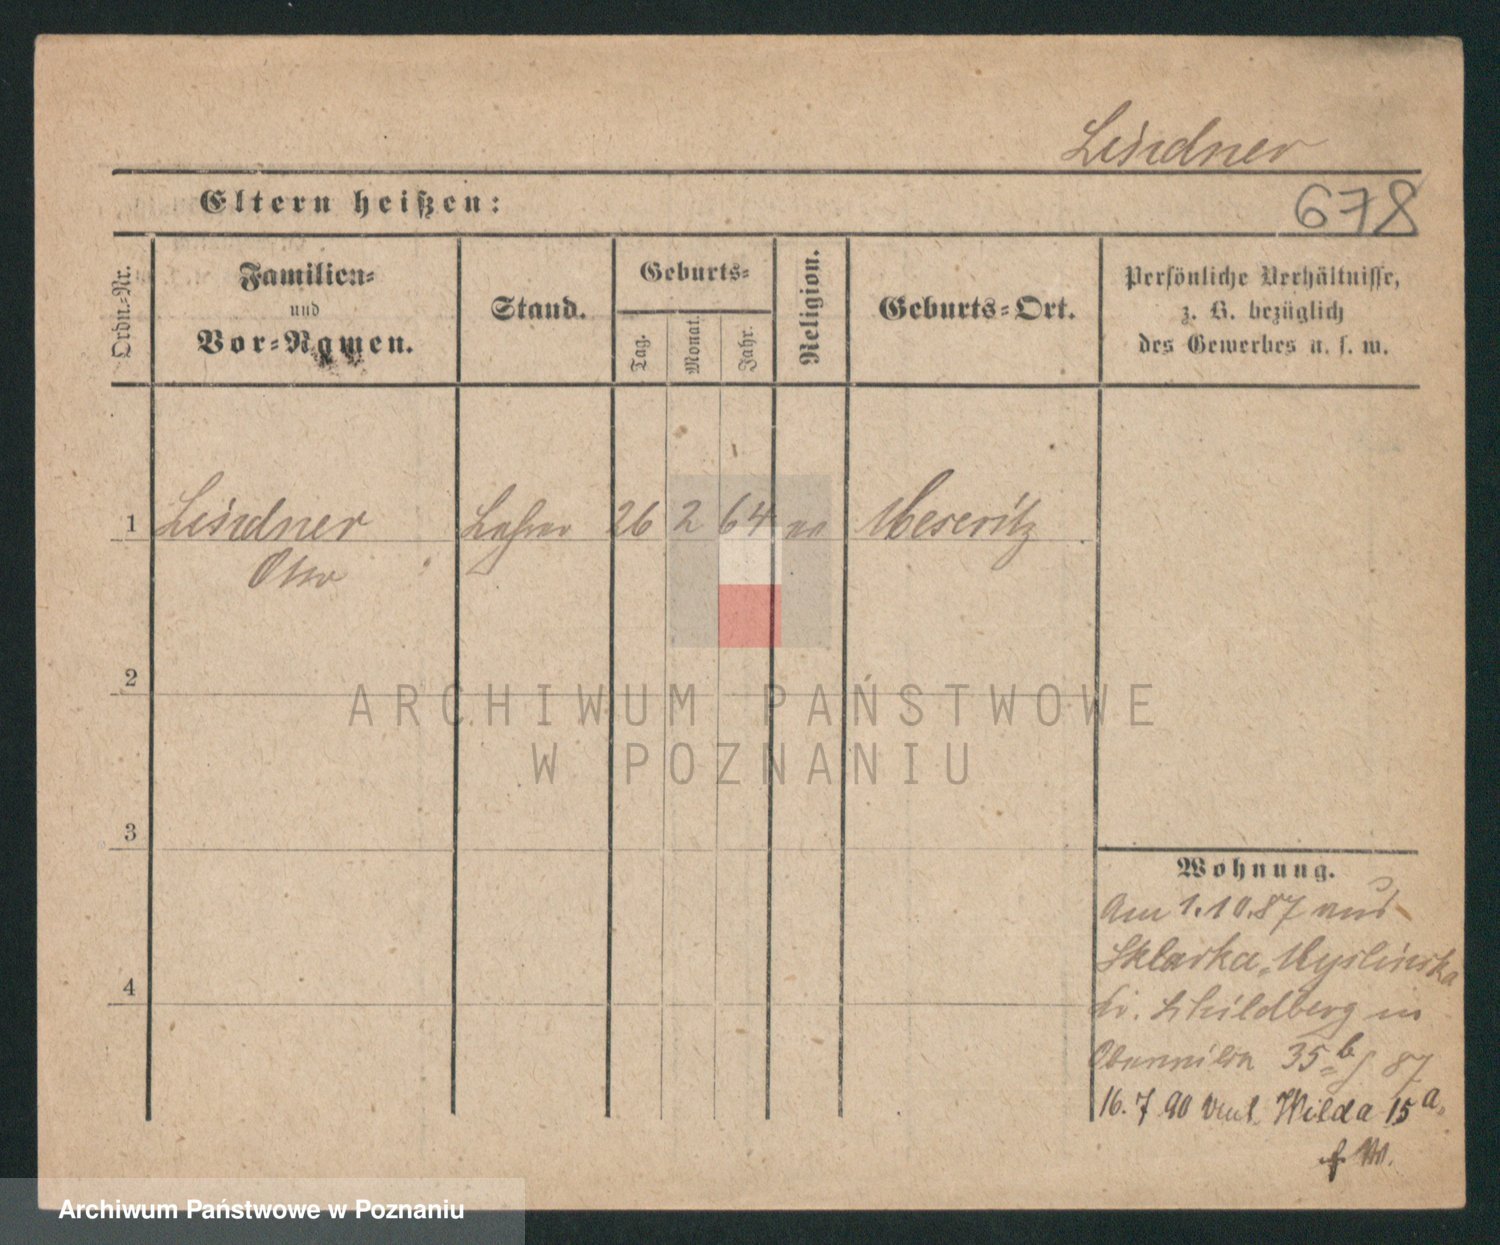 Lindner
Eltern heißen:
678
Ordn.-Nr.
Familien-
und
Vor-Namen.
Stand.
Geburts-
Tag.
Monat.
Jahr.
Religion.
Geburts-Ort.
Persönliche Verhältnisse,
z. B. bezüglich
des Gewerbes u. s. w.
1
Lindner
Otto
Lehrer
26
2
64
Meseritz
2
ARCHIWUM PAŃSTWOWE
W POZNANIU
3
4
Wohnung.
Am 1.10.87 aus
Sklarka Myslniewska
Kr. Schildberg in
Oberwilda 35b 87
16. 7 90 Wilda 15 a.
Archiwum Państwowe w Poznaniu